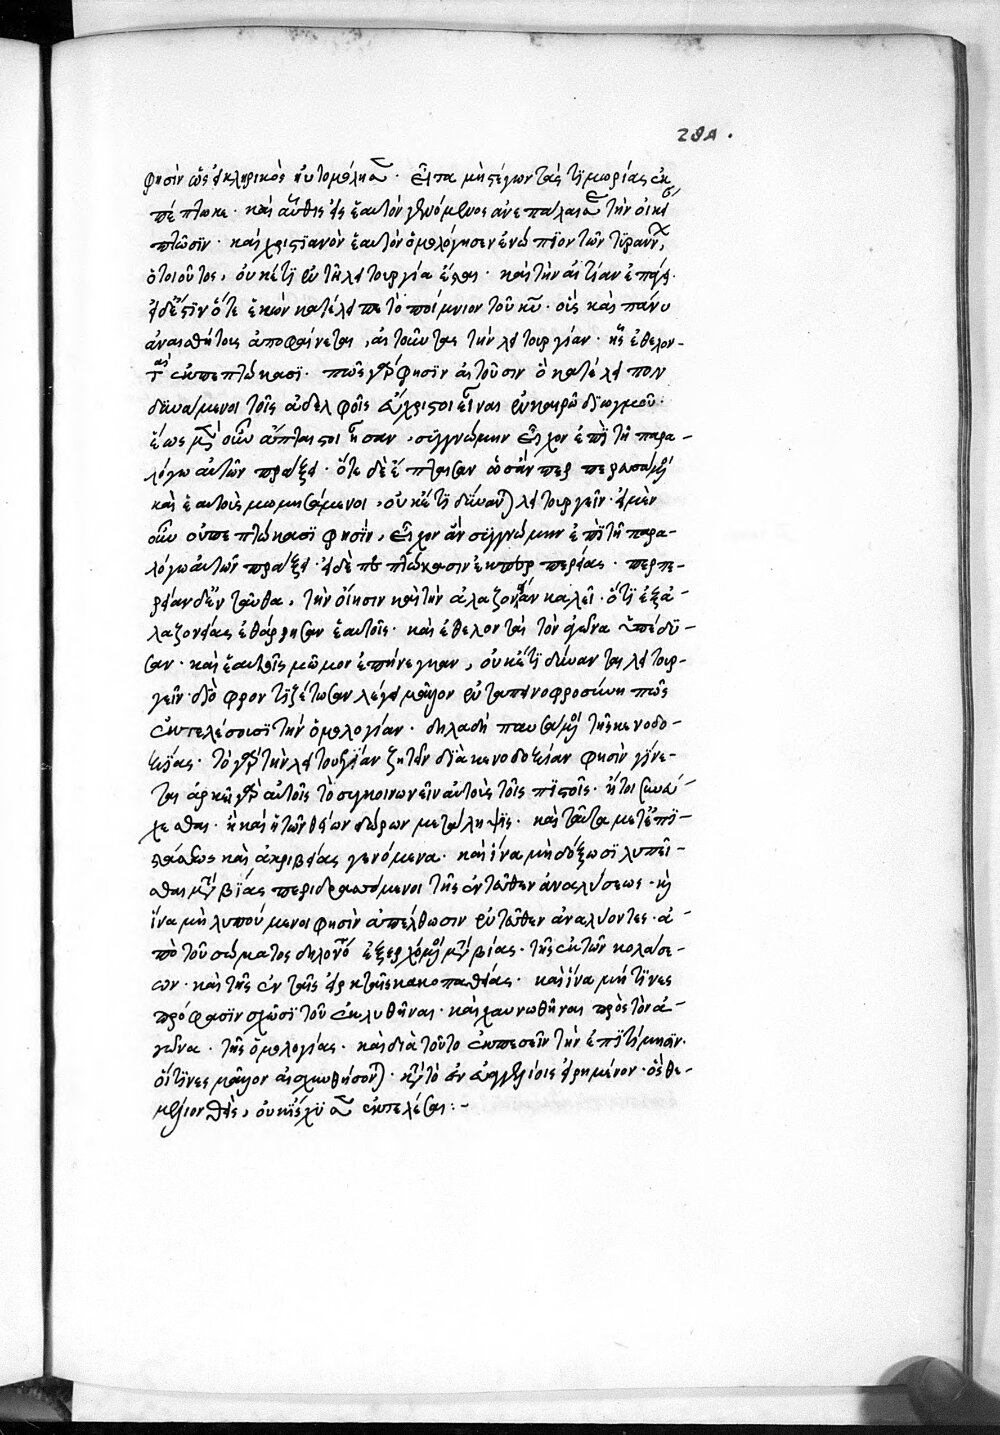 φησὶν ὡς κληρικὸς ηὐτομόλησε. εἶτα μὴ στέγων τὰς τιμωρίας ἐκ
πέπτωκε. καὶ αὖθις εἰς ἑαυτὸν γενόμενος ἀνεπάλαισε τὴν οἰκείαν
πτῶσιν. καὶ χριστιανὸν ἑαυτὸν ὁμολόγησεν ἐνώπιον τῶν τυράννων,
ὁ τοιοῦτος, οὐκέτι ἐν τῇ λειτουργία ἔσται. καὶ τὴν αἰτίαν ἐπάγει.
ὅτε ἑκὼν κατέλειπε τὸ ποίμνιον τοῦ κυ. οἷς καὶ πάνυ
ἀναισθήτοις ἀποφαίνεται, αἰτοῦντας τὴν λειτουργίαν. ἧς ἐθελον-
ταὶ ἐκπεπτώκασι. πῶς γὰρ φησὶν αἰτοῦσιν ὃ κατέλειπον
δυνάμενοι τοῖς ἀδελφοῖς εὔχρηστοι εἶναι ἐν καιρῶ διωγμοῦ.
ἕως μὲν οὖν ἄπταιστοι ἦσαν, συγγνώμην εἶχον ἐπὶ τῆ παρα-
λόγω αὐτῶν πράξει. ὅτε δὲ ἔπταισαν ὡσὰν περπερευσάμενοι
καὶ ἑαυτοὺς μωμησάμενοι, οὐκέτι δύνανται λειτουργεῖν. εἰ μὲν
οὖν οὐ πεπτώκασι φησὶν, εἶχον ἂν συγγνώμην ἐπὶ τῆ παρα-
λόγω αὐτῶν πράξει. εἰ δὲ πεπτώκασιν ἐκ περπερείας. περπε-
ρείαν δὲ ἐνταῦθα, τὴν οἴησιν καὶ τὴν ἀλαζονείαν καλεῖ. ὅτι ἐξ ἀ-
λαζονείας ἐθάρρησαν ἑαυτοῖς. καὶ ἐθελονταὶ τὸν ἀγῶνα ἐπέδυ-
σαν. καὶ ἑαυτοῖς μῶμον ἐπήνεγκαν, οὐκέτι δύνανται λειτουρ-
γεῖν. διὸ φροντιζέτωσαν λέγει μᾶλλον ἐν ταπεινοφροσύνη πῶς
ἐκτελέσουσι τὴν ὁμολογίαν. δηλαδὴ παυσάμενοι τῆς κενοδο-
ξίας. τὸ γὰρ τὴν λειτουργίαν ζητεῖν διὰ κενοδοξίαν φησὶν γίνε-
ται ἀρκεῖ γὰρ αὐτοῖς τὸ συγκοινωνεῖν αὐτοὺς τοῖς πιστοῖς. ἤτοι συνεύ-
χεσθαι. ἢ καὶ ἡ τῶν θείων δώρων μετάληψις. καὶ ταῦτα μετ' ἐπι-
στάσεως καὶ ἀκριβείας γενόμενα. καὶ ἵνα μὴ δόξωσι λυπεῖ-
σθαι μετὰ βίας περιδρασσόμενοι τῆς ἐντεῦθεν ἀναλύσεως. καὶ
ἵνα μὴ λυπούμενοι φησὶν ἀπέλθωσιν ἐντεῦθεν ἀναλύοντες. ἀ-
πὸ τοῦ σώματος δηλονότι ἐξερχόμενοι μετὰ βίας. τῆς ἐκ τῶν κολάσε-
ων. καὶ τῆς ἐν ταῖς εἱρκταῖς κακοπαθείας. καὶ ἵνα μή τινες
πρόφασιν σχῶσι τοῦ ἐκλυθῆναι. καὶ χαυνωθῆναι πρὸς τὸν ἀ-
γῶνα. τῆς ὁμολογίας. καὶ διὰ τοῦτο ἐκπεσεῖν τὴν ἐπιτίμησιν.
οἵτινες μᾶλλον αἰσχυνθήσονται. κατὰ τὸ ἐν εὐαγγελίοις εἰρημένον. ὅς θε-
μέλιον θεὶς, οὐκ ἴσχυσε ἐκτελέσαι:-